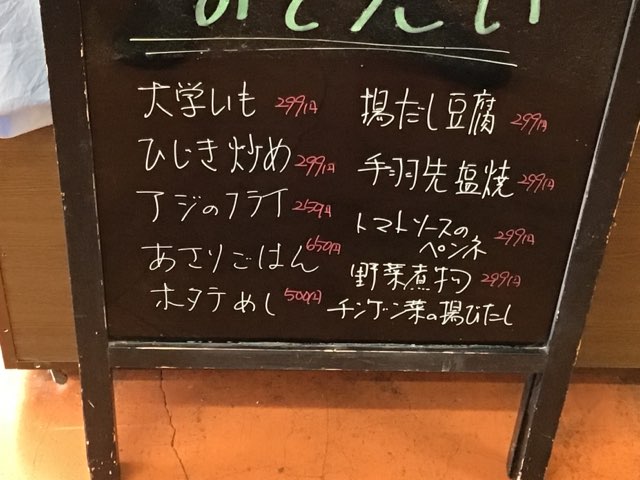 大学いも 299円
ひじき炒め 299円
アジのフライ 259円
あさりごはん 650円
ホタテめし 500円
揚だし豆腐 299円
手羽先塩焼 299円
トマトソースの
ペンネ 299円
野菜煮物 299円
チンゲン菜の揚びたし